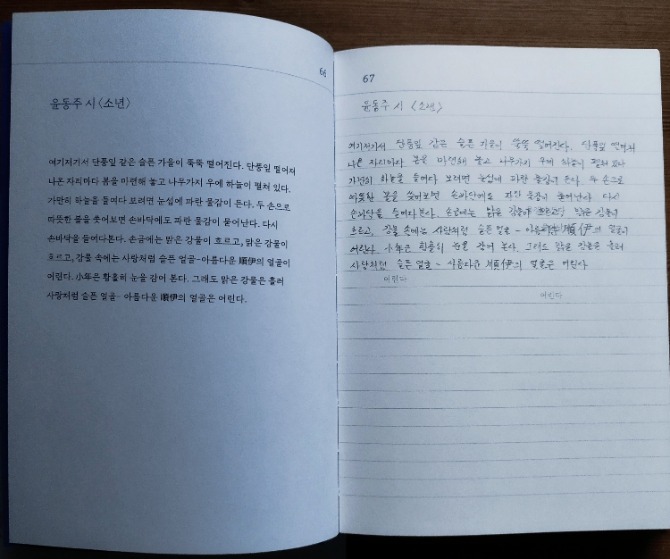 66
윤동주 시 〈소년〉
여기저기서 단풍잎 같은 슬픈 가을이 뚝뚝 떨어진다. 단풍잎 떨어져
나온 자리마다 봄을 마련해 놓고 나무가지 우에 하늘이 펼쳐 있다.
가만히 하늘을 들여다 보려면 눈섭에 파란 물감이 든다. 두 손으로
따뜻한 볼을 쏫어보면 손바닥에도 파란 물감이 묻어난다. 다시
손바닥을 들여다본다. 손금에는 맑은 강물이 흐르고, 맑은 강물이
흐르고, 강물 속에는 사랑처럼 슬픈 얼골-아름다운 順伊의 얼골이
어린다. 小年은 황홀히 눈을 감어 본다. 그래도 맑은 강물은 흘러
사랑처럼 슬픈 얼골- 아름다운 順伊의 얼골은 어린다.
67
윤동주 시 〈소년〉
여기저기서 단풍잎 같은 슬픈 가을이 뚝뚝 떨어진다. 단풍잎 떨어져
나온 자리마다 봄을 마련해 놓고 나무가지 우에 하늘이 펼쳐 있다
가만히 하늘을 들여다 보려면 눈섭에 파란 물감이 든다. 두 손으로
따뜻한 볼을 쏫어보면 손바닥에도 파란 물감이 묻어난다. 다시
손바닥을 들여다본다. 손금에는 맑은 강물이 흐르고 맑은 강물이
흐르고, 강물 속에는 사랑처럼 슬픈 얼골 - 아름다운 順伊의 얼골이
어린다. 小年은 황홀히 눈을 감어 본다. 그래도 맑은 강물은 흘러
사랑처럼 슬픈 얼골 - 아름다운 順伊의 얼골은 어린다
어린다
어린다